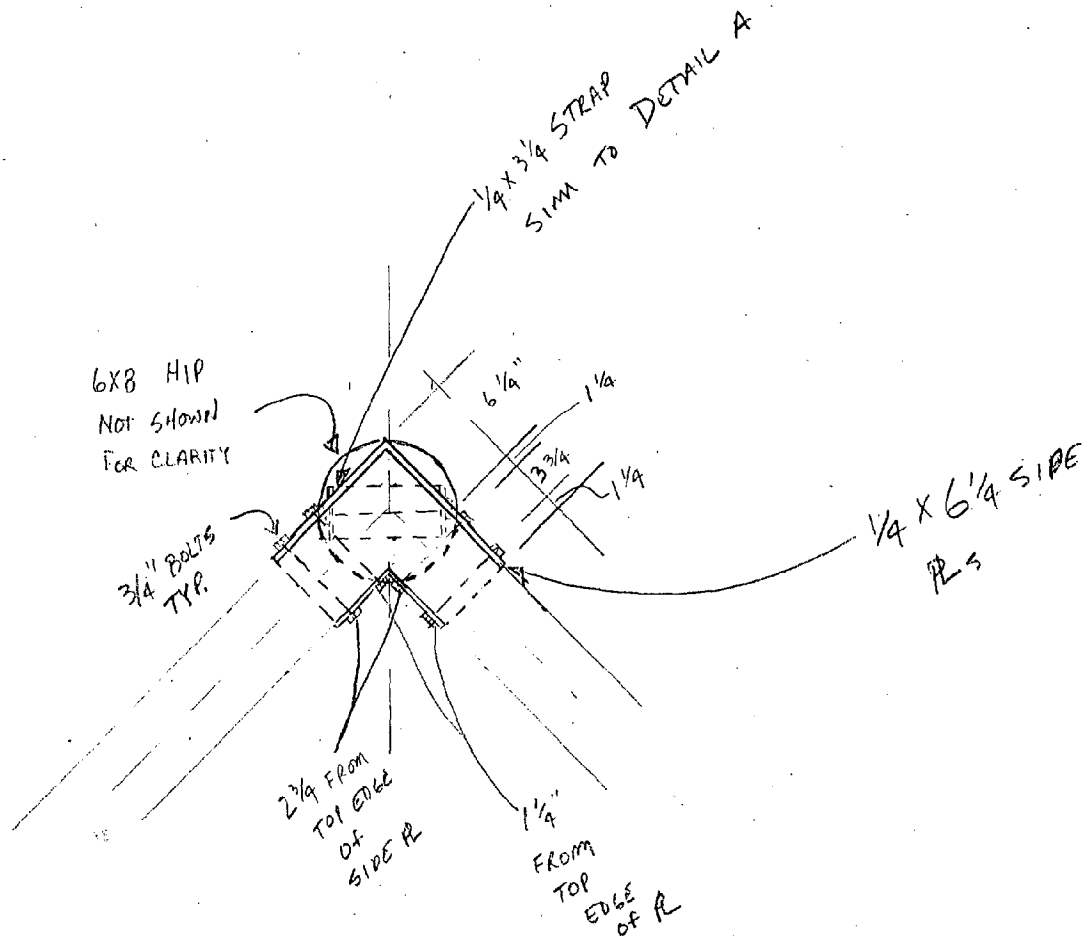 1/4 x 3 1/4 STRAP
SIM TO DETAIL A
6X8 HIP
NOT SHOWN
FOR CLARITY
6 1/4"
1 1/4
3 3/4
1 1/4
3/4" BOLTS
TYP.
1/4 X 6 1/4 SIDE
PLs
2 3/4 FROM
TOP EDGE
OF
SIDE PL
1 1/4"
FROM
TOP
EDGE
OF PL